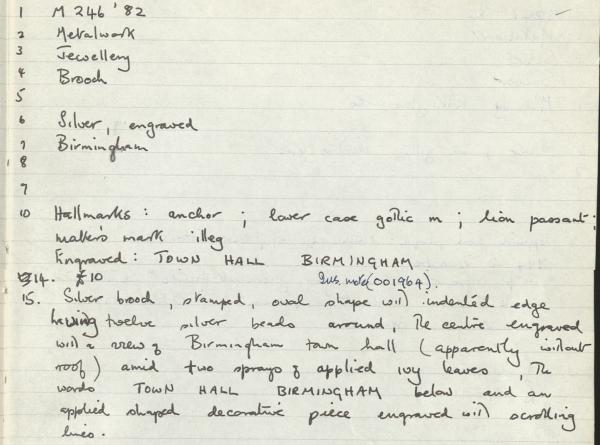 1 M 246 '82
2 Metalwork
3 Jewellery
4 Brooch
5
6 Silver, engraved
7 Birmingham
8
9
10 Hallmarks : anchor ; lower case gothic m ; lion passant ;
maker's mark illeg
Engraved : TOWN HALL BIRMINGHAM
14. £10 Ins. note (001964).
15. Silver brooch, stamped, oval shape with indented edge
having twelve silver beads around, The centre engraved
with a view of Birmingham town hall (apparently without
roof) amid two sprays of applied ivy leaves, The
words TOWN HALL BIRMINGHAM below and an
applied shaped decorative piece engraved with scrolling
lines.